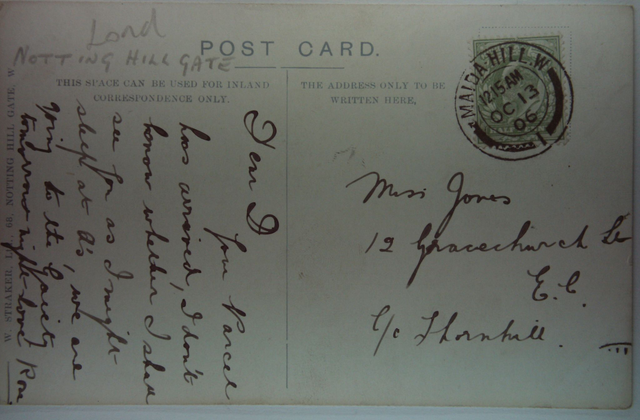 Lord
NOTTING HILL GATE
POST CARD.
THIS SPACE CAN BE USED FOR INLAND
CORRESPONDENCE ONLY.
THE ADDRESS ONLY TO BE
WRITTEN HERE,
MAIDA-HILL. W
12.15 AM
OC 13
06
1
Dear D
Your Parcel
has arrived, I don't
know whether I shall
see you as I might
sleep at A's, we are
going to the Gaiety
tomorrow night love Rose
Miss Jones
12 Gracechurch St
E.C.
C/o Thornhill.
W. STRAKER, 68, NOTTING HILL GATE, W